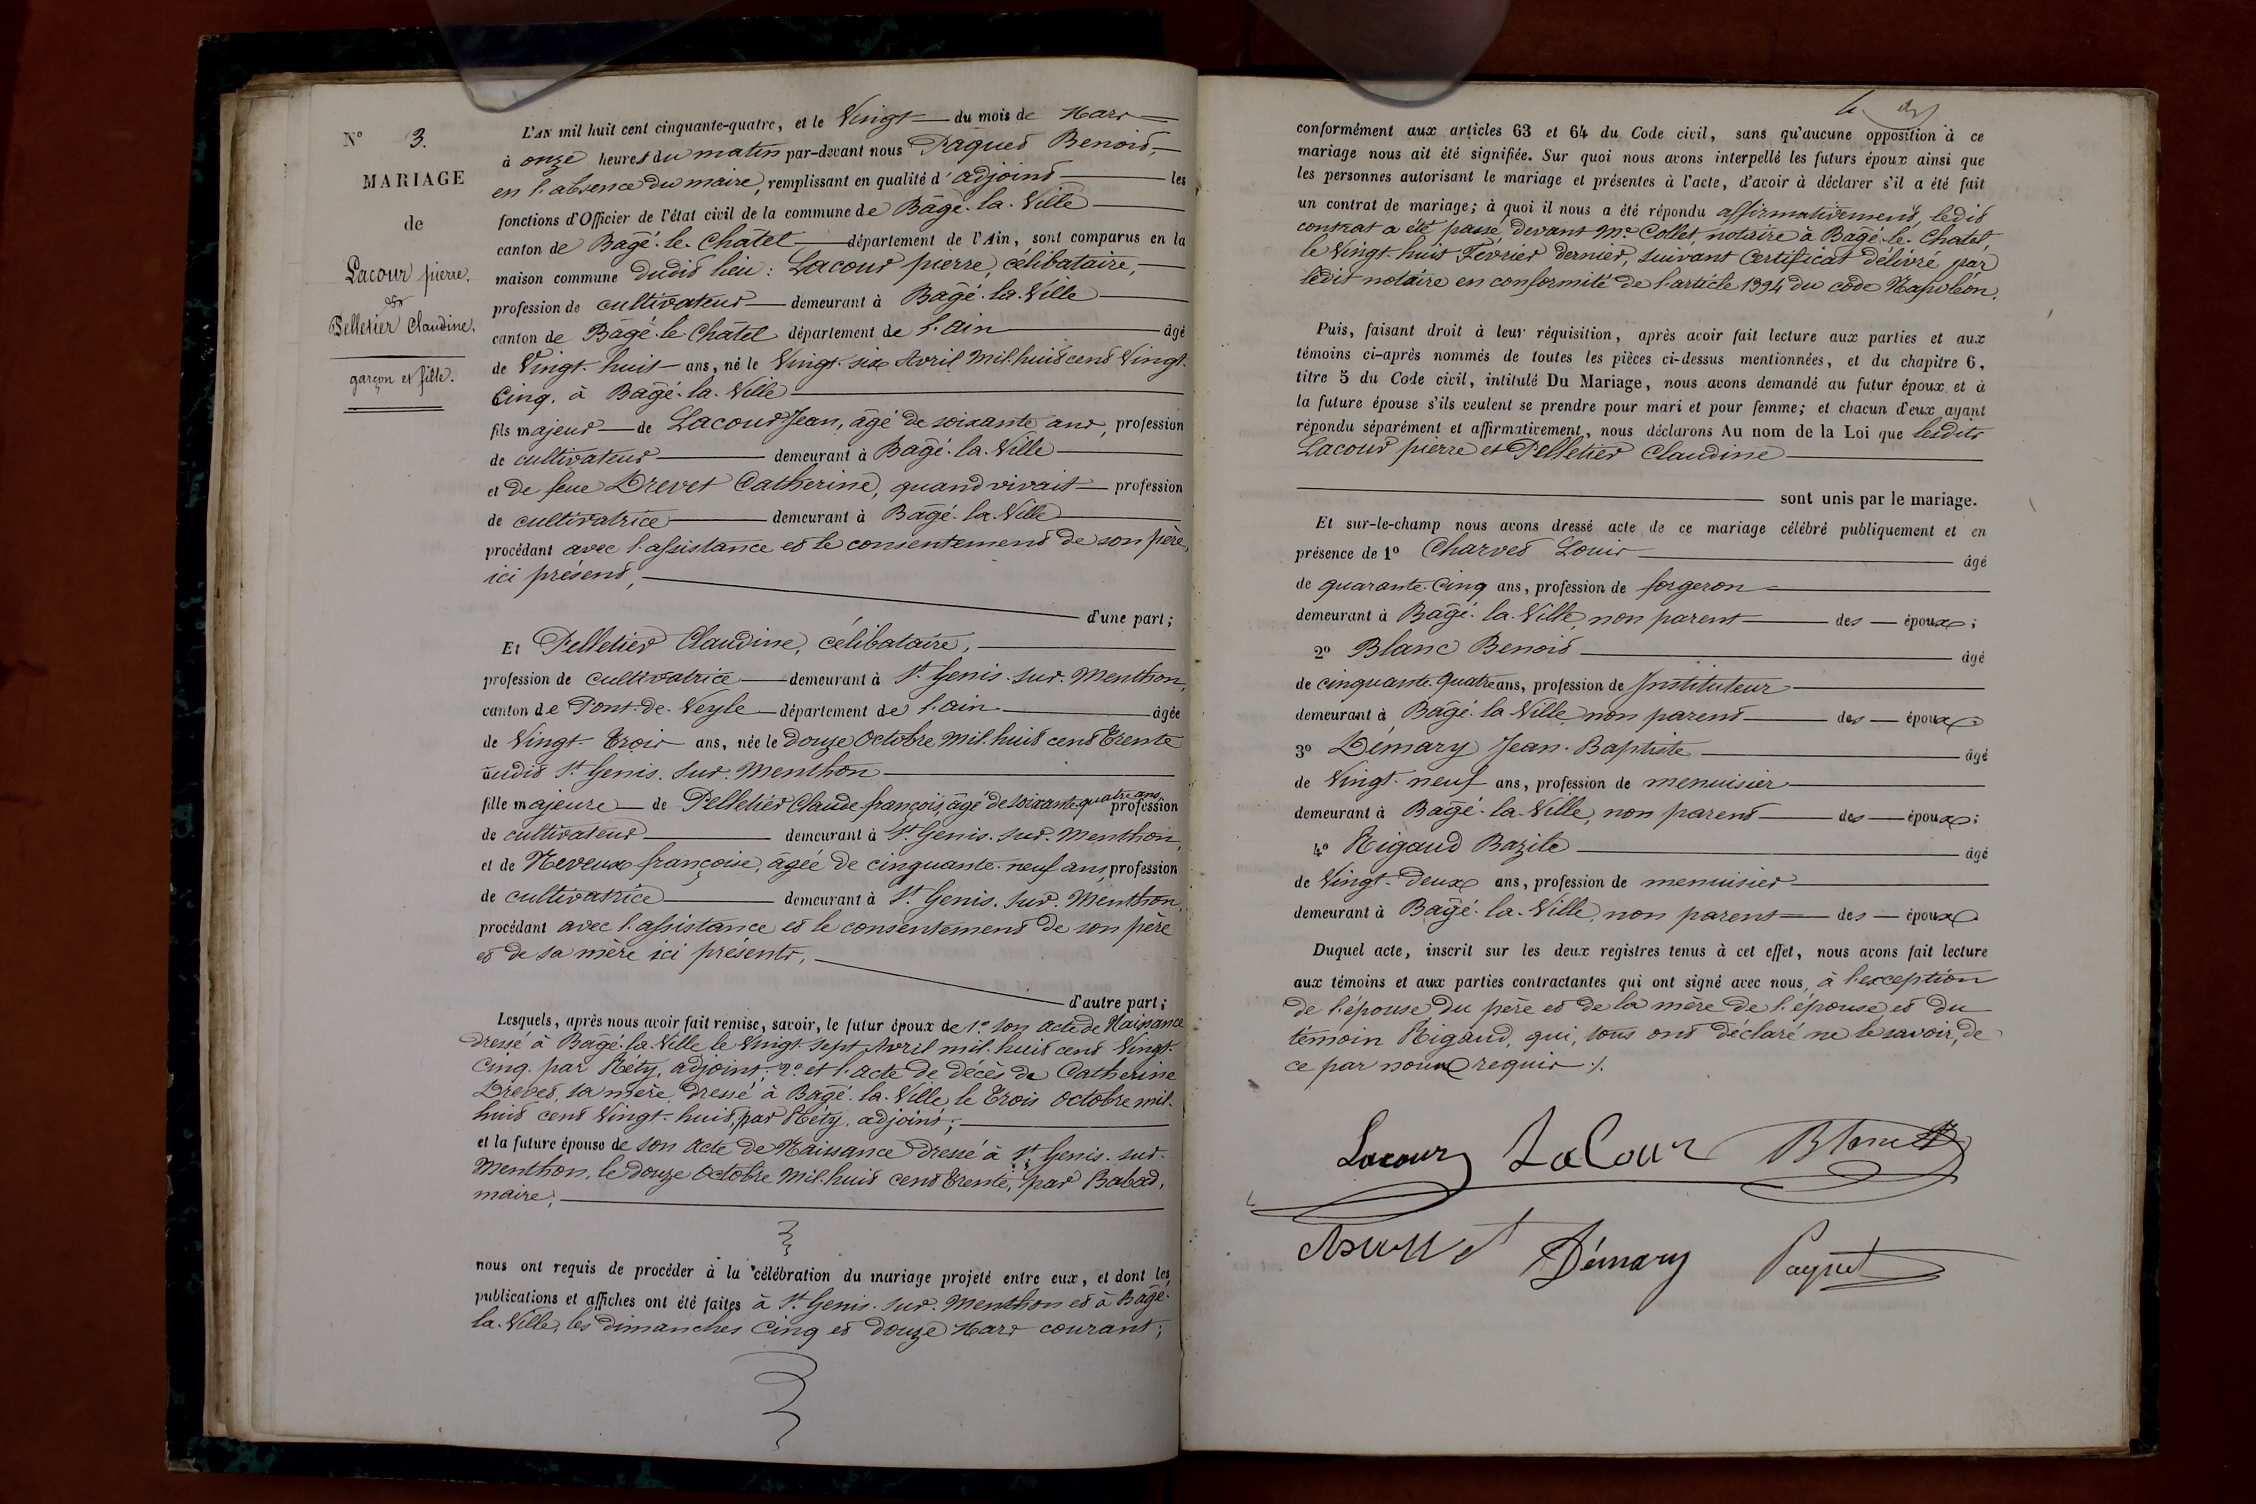 N° 3.
MARIAGE
de
Lacour pierre.
et
Pelletier Claudine.
garçon et fille.
L'AN mil huit cent cinquante-quatre, et le Vingt du mois de Mars
à onze heures du matin par-devant nous Benoit,
en l'absence du maire, remplissant en qualité d'adjoint les
fonctions d'Officier de l'état civil de la commune de Bâgé-la-Ville
canton de Bâgé-le-Châtel département de l'Ain, sont comparus en la
maison commune dudit lieu : Lacour pierre, célibataire,
profession de cultivateur demeurant à Bâgé-la-Ville
canton de Bâgé-le-Châtel département de l'ain âgé
de Vingt-huit ans, né le Vingt-six Avril Mil-huit cent Vingt-
Cinq, à Bâgé-la-Ville
fils majeur de Lacour Jean, âgé de soixante ans, profession
de cultivateur demeurant à Bâgé-la-Ville
et de feue Drevet Catherine, quand vivait profession
de cultivatrice demeurant à Bâgé-la-Ville
procédant avec l'assistance et le consentement de son père,
ici présent, d'une part ;
Et Pelletier Claudine, célibataire,
profession de cultivatrice demeurant à St Genis-sur-Menthon,
canton de Pont-de-Veyle département de l'ain âgée
de Vingt-Trois ans, née le douze Octobre Mil-huit cent Trente
audit St Genis-sur-Menthon
fille majeure de Pelletier Claude françois, âgé de soixante-quatre ans, profession
de cultivateur demeurant à St Genis-sur-Menthon,
et de Neveux françoise, âgée de cinquante-neuf ans, profession
de cultivatrice demeurant à St Genis-sur-Menthon,
procédant avec l'assistance et le consentement de son père
et de sa mère ici présents, d'autre part ;
Lesquels, après nous avoir fait remise, savoir, le futur époux de 1° son acte de Naissance
dressé à Bâgé-la-Ville le Vingt-sept Avril mil-huit cent Vingt-
Cinq, par Réty, adjoint ; 2° et l'acte de décès de Catherine
Drevet, sa mère, dressé à Bâgé-la-Ville le Trois Octobre mil-
huit cent Vingt-huit, par Réty, adjoint ;
et la future épouse de son acte de Naissance dressé à St Genis-sur-
Menthon, le douze Octobre Mil-huit cent Trente, par Babad,
maire ;
nous ont requis de procéder à la célébration du mariage projeté entre eux, et dont les
publications et affiches ont été faites à St Genis-sur-Menthon et à Bâgé-
la-Ville, les dimanches Cinq et douze Mars courant ;
conformément aux articles 63 et 64 du Code civil, sans qu'aucune opposition à ce
mariage nous ait été signifiée. Sur quoi nous avons interpellé les futurs époux ainsi que
les personnes autorisant le mariage et présentes à l'acte, d'avoir à déclarer s'il a été fait
un contrat de mariage ; à quoi il nous a été répondu affirmativement, ledit
contrat a été passé devant Me Collet, notaire à Bâgé-le-Châtel,
le Vingt-huit Février dernier, suivant Certificat délivré par
ledit notaire en conformité de l'article 1394 du code Napoléon.
Puis, faisant droit à leur réquisition, après avoir fait lecture aux parties et aux
témoins ci-après nommés de toutes les pièces ci-dessus mentionnées, et du chapitre 6,
titre 5 du Code civil, intitulé Du Mariage, nous avons demandé au futur époux et à
la future épouse s'ils veulent se prendre pour mari et pour femme ; et chacun d'eux ayant
répondu séparément et affirmativement, nous déclarons Au nom de la Loi que lesdits
Lacour pierre et Pelletier Claudine
sont unis par le mariage.
Et sur-le-champ nous avons dressé acte de ce mariage célébré publiquement et en
présence de 1° Charvet Louis âgé
de quarante-Cinq ans, profession de forgeron
demeurant à Bâgé-la-Ville, non parent des époux ;
2° Blanc Benoit âgé
de cinquante-Quatre ans, profession de Instituteur
demeurant à Bâgé-la-Ville, non parent des époux
3° Démary Jean-Baptiste âgé
de Vingt-neuf ans, profession de menuisier
demeurant à Bâgé-la-Ville, non parent des époux ;
4° Rigaud Bazile âgé
de Vingt-Deux ans, profession de menuisier
demeurant à Bâgé-la-Ville, non parent des époux.
Duquel acte, inscrit sur les deux registres tenus à cet effet, nous avons fait lecture
aux témoins et aux parties contractantes qui ont signé avec nous, à l'exception
de l'épouse, du père et de la mère de l'épouse et du
témoin Rigaud, qui, tous ont déclaré ne le savoir, de
ce par nous requis ./.
Lacour Lacour Blanc
Charvet Démary